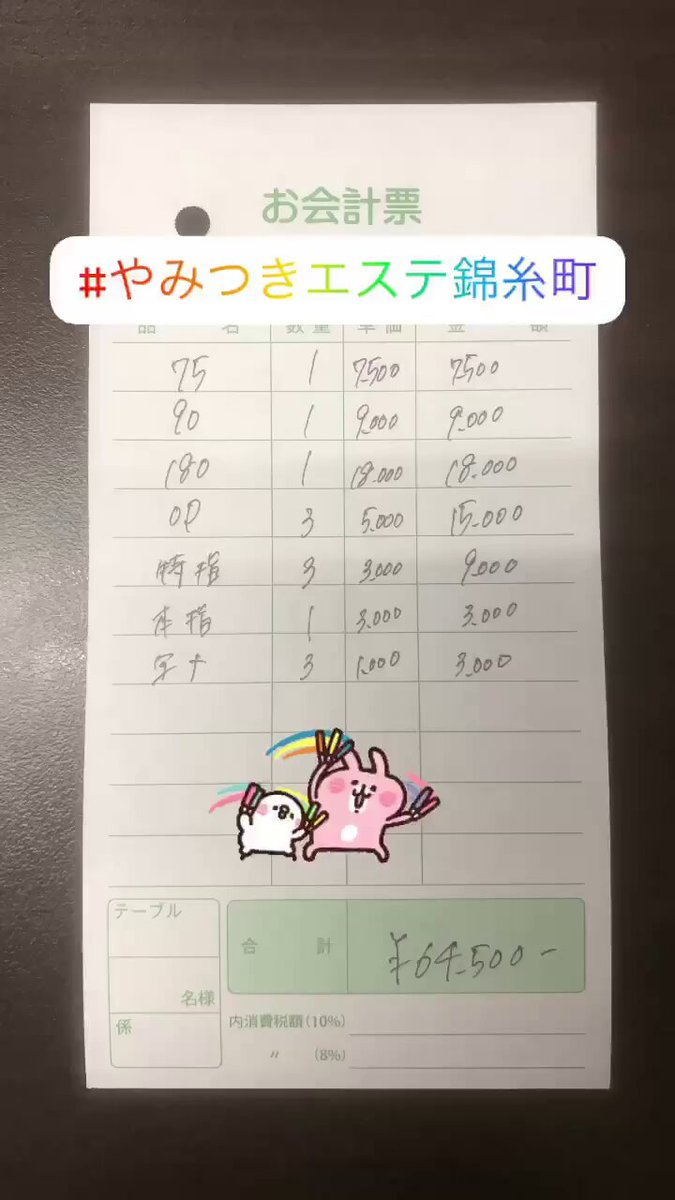 お会計票
#やみつきエステ錦糸町
品 名 数量 単価 金 額
75 1 7,500 7,500
90 1 9,000 9,000
180 1 18,000 18,000
OP 3 5,000 15,000
特指 3 3,000 9,000
本指 1 3,000 3,000
3 1,000 3,000
テーブル
合 計 ¥64,500-
名様
係
内消費税額(10%)
〃 (8%)